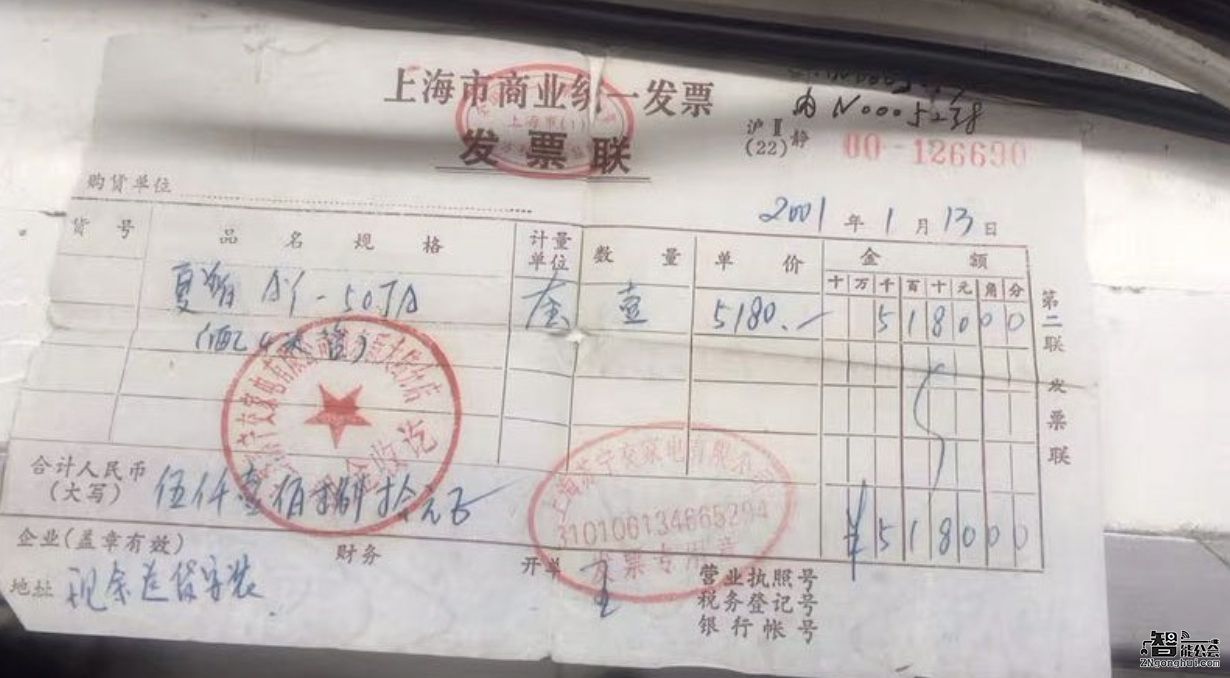 上海市商业统一发票
发票联
内 N0005238
沪Ⅱ静
(22)
00-126690
购货单位
2001 年 1 月 13 日
货号 品名规格 计量单位 数量 单价 金额
十 万 千 百 十 元 角 分
夏普 AY-50JA 套 壹 5180.— 5 1 8 0 0 0
第二联 发票联
合计人民币
(大写) 伍仟壹佰捌拾元正 ¥ 5 1 8 0 0 0
企业(盖章有效) 财务 开单 王
地址 现余送货安装
营业执照号
税务登记号
银行帐号
上海苏宁交家电有限公司
310106134665294
发票专用章
现金收讫
智能公会
ZNgonghui.com